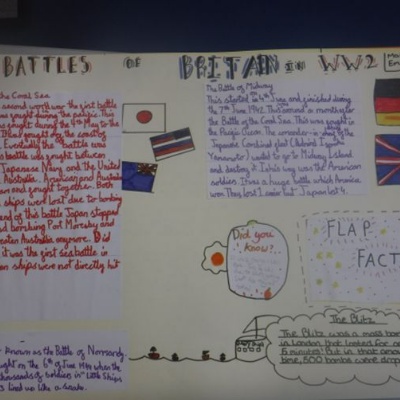 BATTLES OF BRITAIN in WW2
the Coral Sea
second world war the first battle
was fought during the pacific. This
fought during the 4th May to the
fought by the coast of
Eventually the battle was
battle was fought between
Japanese Navy and the United
Australia. American and Australia
and fought together. Both
ships were lost due to bombing
end of this battle Japan stopped
bombing Port Moresby and
Australia anymore. Did
it was the first sea battle in
ships were not directly hit
The Battle of Midway
This started in 4th June and finished during
the 7th June 1942. This occured a month after
the Battle of the Coral Sea. This was fought in
the Pacific Ocean. The comander-in-chief of the
Japanese Combined fleet (Admiral Isoroku
Yamamoto) wanted to go to Midway Island
and destroy it. In his way was the American
soldiers. It was a huge battle which America
won. They lost 1 carrier but Japan lost 4.
Did you
know...
FLAP
FACT
The Blitz
The Blitz was a mass bom
in London that lasted for
minutes! But in that amou
time, 500 bombs were drop
Known as the Battle of Normandy.
ught on the 6th of June 1944 when the
thousands of soldiers in Little Ships
lined up like a snake.